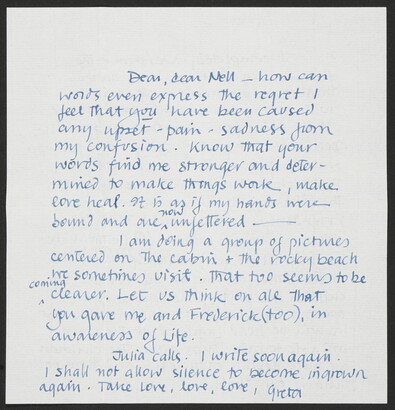 Dear, dear Nell — how can
words even express the regret I
feel that you have been caused
any upset - pain - sadness from
my confusion. Know that your
words find me stronger and deter-
mined to make things work, make
love heal. It is as if my hands were
bound and are now unfettered —
I am doing a group of pictures
centered on the cabin + the rocky beach
we sometimes visit. That too seems to be
coming clearer. Let us think on all that
you gave me and Frederick (too), in
awareness of Life.
Julia calls. I write soon again.
I shall not allow silence to become ingrown
again. Take love, love, love, Greta